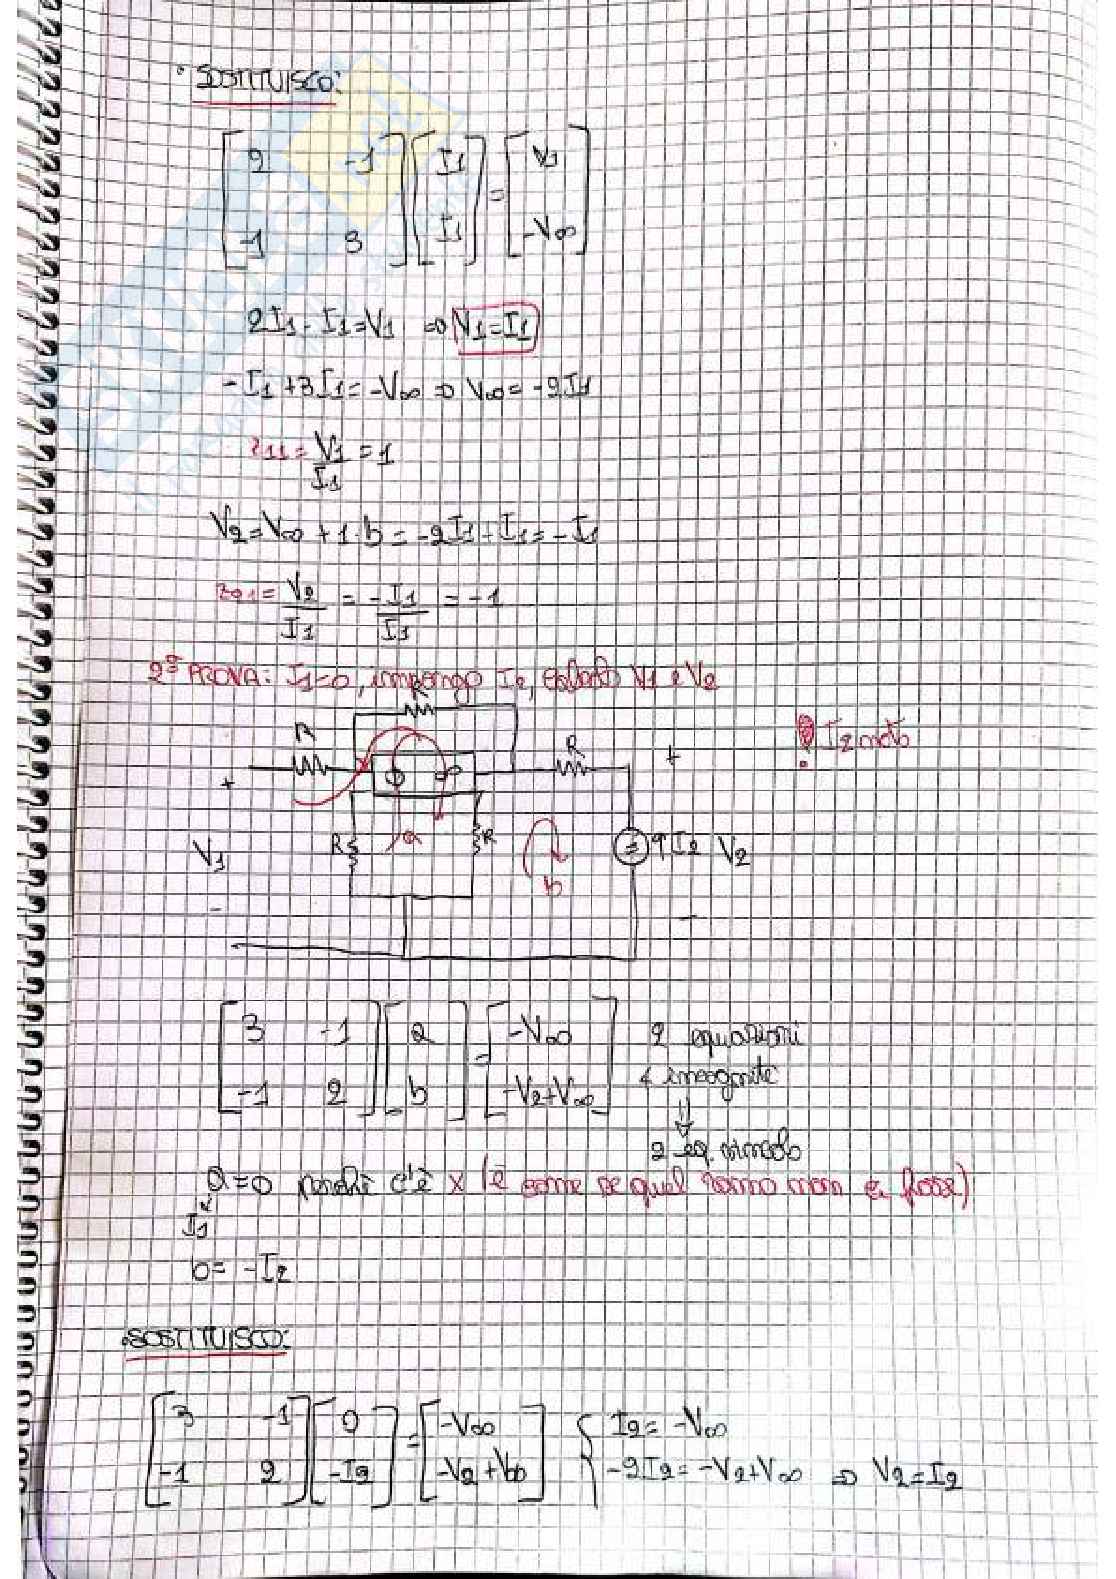 • SOSTITUISCO:
[2 -1; -1 3] [I1; I1] = [V1; -V∞]
2I1 - I1 = V1 ⇒ V1 = I1
-I1 + 3I1 = -V∞ ⇒ V∞ = -2I1
z11 = V1/I1 = 1
V2 = V∞ + 1·b = -2I1 + I1 = -I1
z21 = V2/I1 = -I1/I1 = -1
2ª PROVA: I1=0, impongo I2, calcolo V1 e V2
R
R
R
! I2 noto
+
∅ ∞
+
V1
R
a
R
b
↑ I2 V2
-
-
[3 -1; -1 2] [a; b] = [-V∞; -V2+V∞]
2 equazioni
4 incognite
⇓
2 eq. vincolo
a=0 perchè c'è × (è come se quel ramo non ci fosse)
I1
b = -I2
• SOSTITUISCO:
[3 -1; -1 2] [0; -I2] = [-V∞; -V2+V∞]
{ I2 = -V∞
-2I2 = -V2+V∞ ⇒ V2 = I2